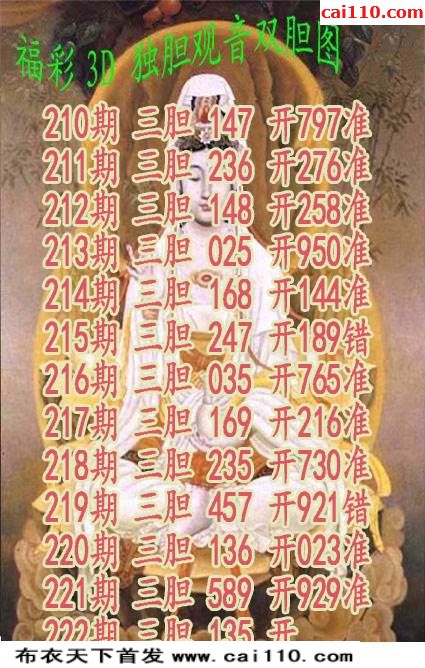 红五图库
cai110.com
福彩3D 独胆观音双胆图
210期 三胆 147 开797准
211期 三胆 236 开276准
212期 三胆 148 开258准
213期 三胆 025 开950准
214期 三胆 168 开144准
215期 三胆 247 开189错
216期 三胆 035 开765准
217期 三胆 169 开216准
218期 三胆 235 开730准
219期 三胆 457 开921错
220期 三胆 136 开023准
221期 三胆 589 开929准
222期 三胆 135 开
布衣天下首发 www.cai110.com